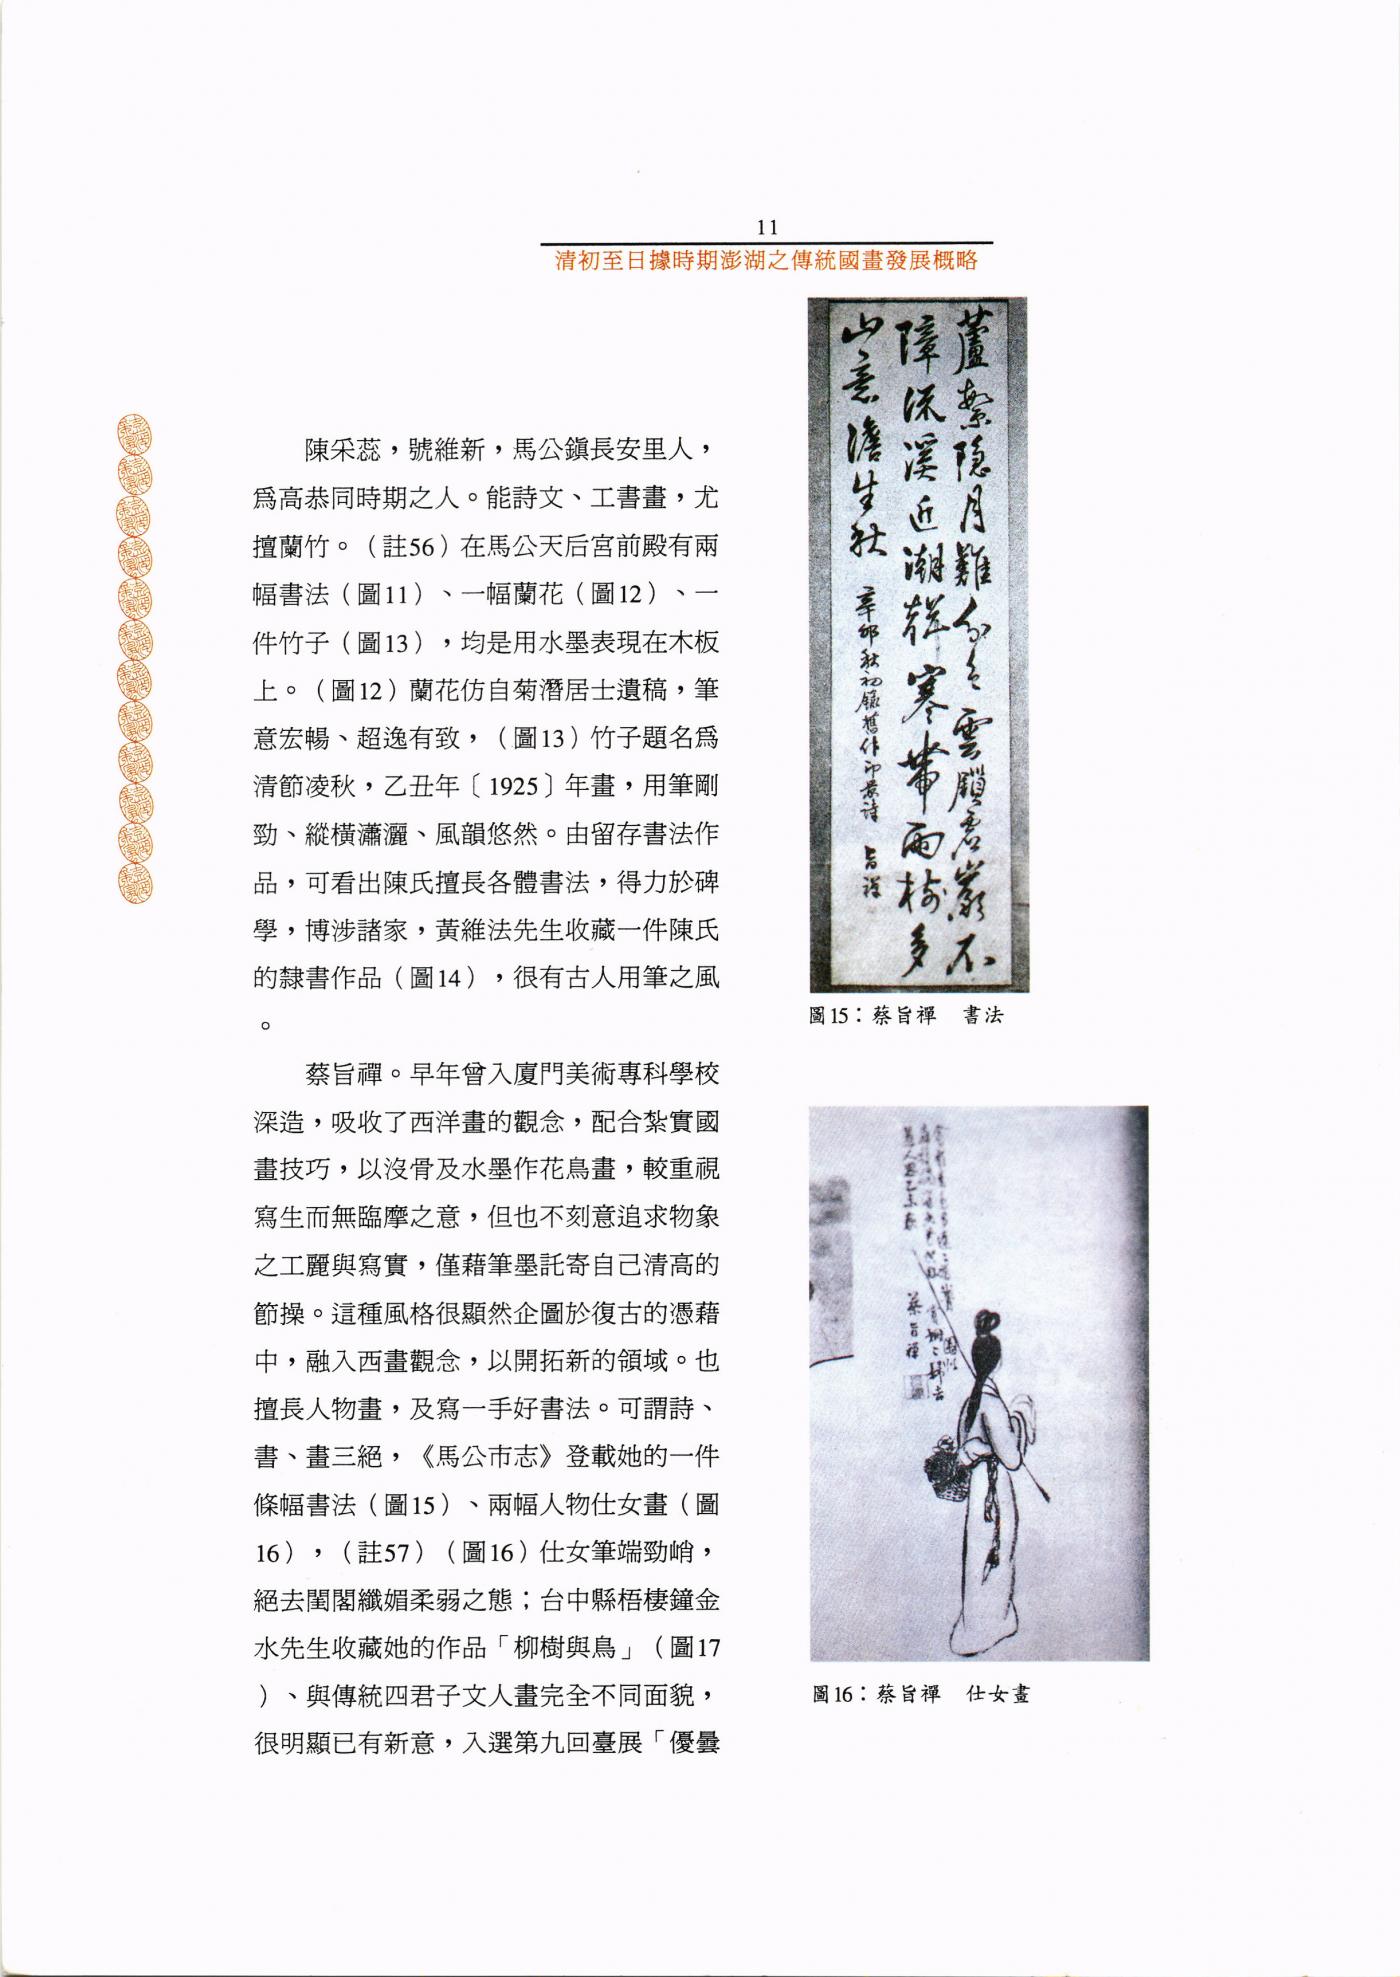 11
清初至日據時期澎湖之傳統國畫發展概略
陳采蕊，號維新，馬公鎮長安里人，
爲高恭同時期之人。能詩文、工書畫，尤
擅蘭竹。（註56）在馬公天后宮前殿有兩
幅書法（圖11）、一幅蘭花（圖12）、一
件竹子（圖13），均是用水墨表現在木板
上。（圖12）蘭花仿自菊潛居士遺稿，筆
意宏暢、超逸有致，（圖13）竹子題名爲
清節凌秋，乙丑年〔1925〕年畫，用筆剛
勁、縱橫瀟灑、風韻悠然。由留存書法作
品，可看出陳氏擅長各體書法，得力於碑
學，博涉諸家，黃維法先生收藏一件陳氏
的隸書作品（圖14），很有古人用筆之風
。
蔡旨禪。早年曾入廈門美術專科學校
深造，吸收了西洋畫的觀念，配合紮實國
畫技巧，以沒骨及水墨作花鳥畫，較重視
寫生而無臨摩之意，但也不刻意追求物象
之工麗與寫實，僅藉筆墨託寄自己清高的
節操。這種風格很顯然企圖於復古的憑藉
中，融入西畫觀念，以開拓新的領域。也
擅長人物畫，及寫一手好書法。可謂詩、
書、畫三絕，《馬公市志》登載她的一件
條幅書法（圖15）、兩幅人物仕女畫（圖
16），（註57）（圖16）仕女筆端勁峭，
絕去閨閣纖媚柔弱之態；台中縣梧棲鐘金
水先生收藏她的作品「柳樹與鳥」（圖17
）、與傳統四君子文人畫完全不同面貌，
很明顯已有新意，入選第九回臺展「優曇
蘆繁隱月難分色雲鎖危巖不
障流溪近潮聲寒帶雨樹多
山意澹生秋
辛卯秋初錄舊作印岩詩 旨禪
圖15：蔡旨禪　書法
蔡旨禪
圖16：蔡旨禪　仕女畫